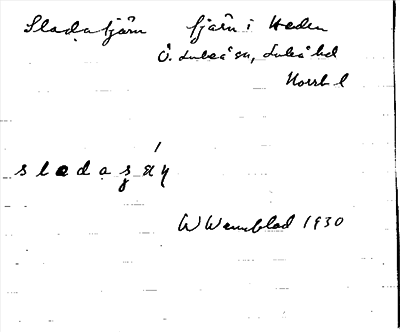 Sladatjärn tjärn i Heden
Ö. Luleå sn, Luleå hd
Norrb l
W Wennblad 1930